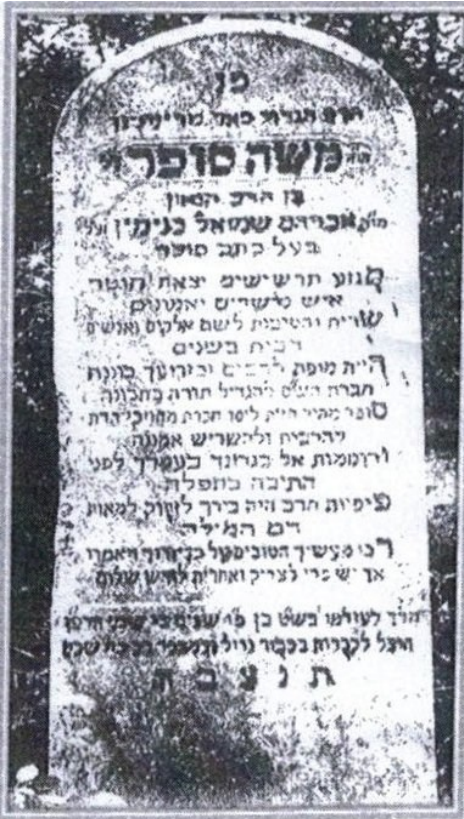 פנ
הרב הגדול
משה סופר
בן הרב הגאון
אברהם שמואל בנימין
בעל כתב סופר
מגזע תרשישים יצאת חוטר
איש מישרים
והטיבות לשם אלקים ואנשים
רבית בשנים
היית מופת לרבים ובזרועך כוננת
חברת הש"ס להגדיל תורה בתבונה
סופר מהיר היית ליסד חברת מחזיקי הדת
להרבית ולהשריש אמונה
ורוממות אל בגרונך בעמדך לפני
התיבה בתפלה
פיפיות חרב היה בידך לזקוק למאות
דם המילה
רבו מעשיך הטובים על כן
אך יש פרי לצדיק ואחרית לאיש שלום
הלך לעולמו בן
והובל לקברות בכבוד גדול
ת נ צ ב ה